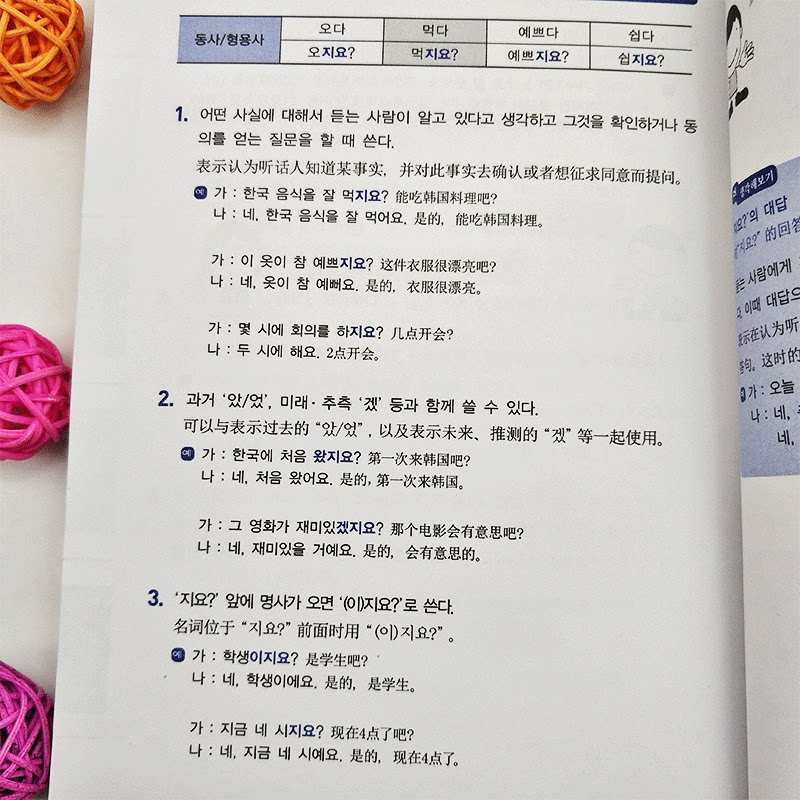 동사/형용사 오다 먹다 예쁘다 쉽다
오지요? 먹지요? 예쁘지요? 쉽지요?
1. 어떤 사실에 대해서 듣는 사람이 알고 있다고 생각하고 그것을 확인하거나 동
의를 얻는 질문을 할 때 쓴다.
表示认为听话人知道某事实，并对此事实去确认或者想征求同意而提问。
예 가 : 한국 음식을 잘 먹지요? 能吃韩国料理吧?
나 : 네, 한국 음식을 잘 먹어요. 是的，能吃韩国料理。
가 : 이 옷이 참 예쁘지요? 这件衣服很漂亮吧?
나 : 네, 옷이 참 예뻐요. 是的，衣服很漂亮。
가 : 몇 시에 회의를 하지요? 几点开会?
나 : 두 시에 해요. 2点开会。
2. 과거 ‘았/었’, 미래·추측 ‘겠’ 등과 함께 쓸 수 있다.
可以与表示过去的“았/었”, 以及表示未来、推测的“겠”等一起使用。
예 가 : 한국에 처음 왔지요? 第一次来韩国吧?
나 : 네, 처음 왔어요. 是的, 第一次来韩国。
가 : 그 영화가 재미있겠지요? 那个电影会有意思吧?
나 : 네, 재미있을 거예요. 是的，会有意思的。
3. ‘지요?’ 앞에 명사가 오면 ‘(이)지요?’로 쓴다.
名词位于“지요?”前面时用“(이)지요?”。
예 가 : 학생이지요? 是学生吧?
나 : 네, 학생이에요. 是的，是学生。
가 : 지금 네 시지요? 现在4点了吧?
나 : 네, 지금 네 시예요. 是的，现在4点了。
생각해보기
지요?’의 대답
지요?”的回答
듣는 사람에게
다. 이때 대답으
表示在认为听
答句。这时的
가 : 오늘
나 : 네,
네,